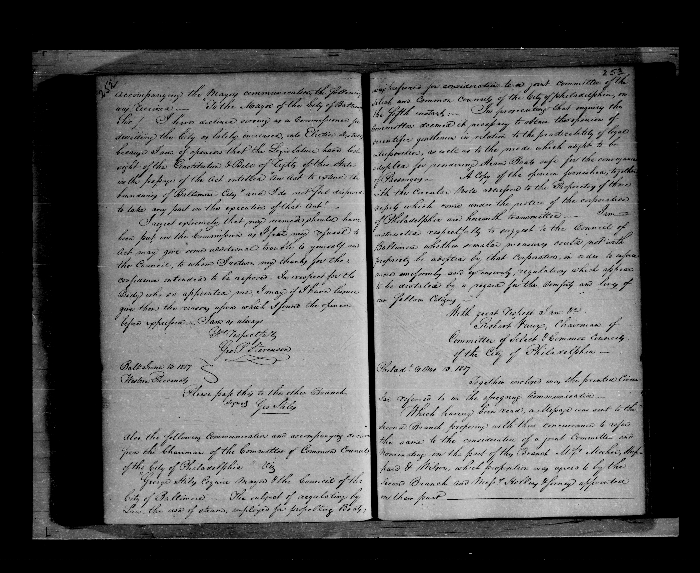 252
accompanying the Mayors communication, the following
was received — To the Mayor of the City of Baltimore
Sir, I have declined serving as a Commissioner for
dividing the City as lately increased, into Election districts
because I am of opinion that the Legislature have lost
sight of the Constitution & Rule of Rights of this State
in the passage of the Act entitled "An Act to extend the
boundary of Baltimore City" and I do not feel disposed
to take any part in the execution of that Act.
I regret extremely that my name should have
been put in the Commission as I fear my refusal to
Act may give some additional trouble to yourself and
the Council, to whom I return my thanks for the
confidence intended to be reposed. In respect for the
Body who so appointed me I may if I have leisure
give them the reasons upon which I found the opinion
before expressed — I am as always
Yrs Respectfully
Geo. P. Stevenson
Balto June 10 1817
Western Precincts
Please pass this to the other Branch
signed Geo Stiles
Also the following Communication and accompanying
from the Chairman of the Committee of Common Councils
of the City of Philadelphia — Viz
"George Stiles Esquire Mayor & the Council of the
City of Baltimore The subject of regulating by
Law the use of steam, employed for propelling Boats,
253
was referred for consideration to a joint Committee of the
Select and Common Councils of the City of Philadelphia, on
the fifth instant — In prosecuting that inquiry the
Committee deemed it necessary to obtain the opinions of
scientific gentlemen in relation to the practicability of legal
interposition, as well as to the mode which ought to be
adopted for rendering Steam Boats safe for the conveyance
of Passengers — A Copy of the opinion furnished, together
with the Circular Note addressed to the Proprietors of those
which come under the notice of the corporation
of Philadelphia are herewith transmitted — I am
instructed respectfully to suggest to the Council of
Baltimore whether similar measures could not with
propriety be adopted by that Corporation in order to
more uniformity and regulations which appear
to be dictated by a regard for the Comforts and lives of
our fellow Citizens
With great Respect I am &c
Robert Vaux, Chairman of
Committee of Select & Common Councils
of the City of Philadelphia —
Philada 10 1817
Together enclosed was the printed Circu-
lar referred to in the foregoing Communication —
Which having been read, a Message was sent to the
Second Branch proposing with their concurrence to refer
the same to the consideration of a joint Committee and
nominating on the part of this Branch Messrs
& Wilson, which proposition was agreed to by the
Second Branch and Messrs appointed
on their part —